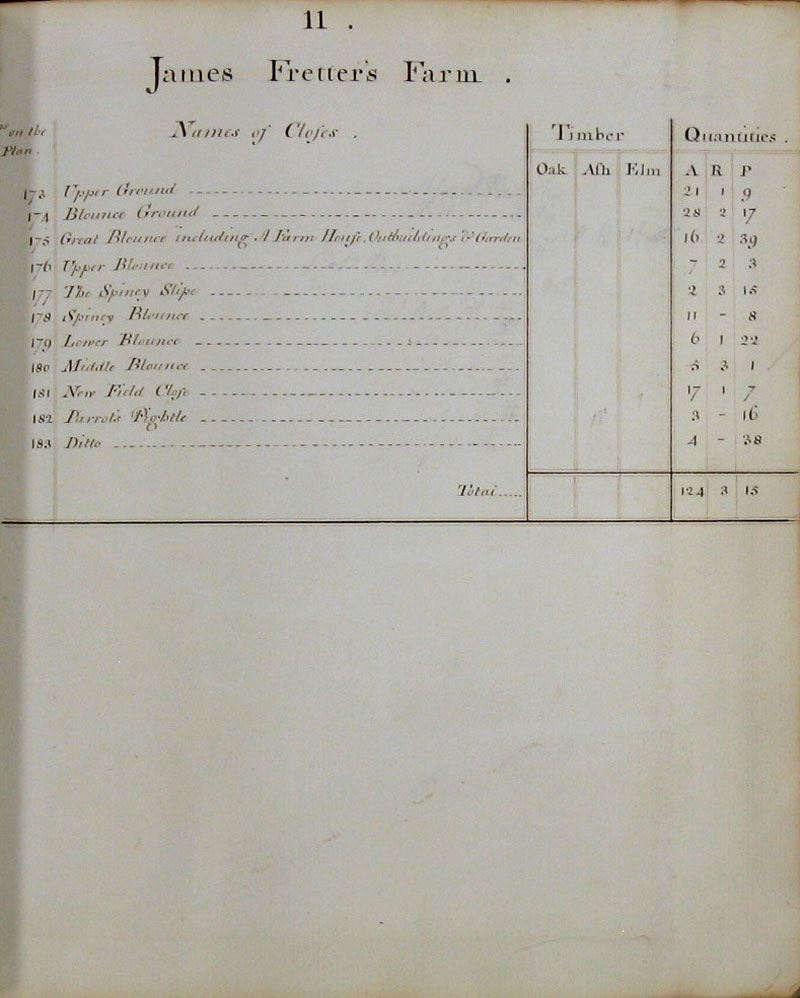 11 .
James Fretter's Farm .
on the Plan . Names of Closes . Timber Quantities .
Oak Ash Elm A R P
173 Upper Ground 21 1 9
174 Blounce Ground 28 2 17
175 Great Blounce including A Farm House, Outbuildings & Garden 16 2 39
176 Upper Blounce 7 2 3
177 The Spiney Slipe 2 3 15
178 Spiney Blounce 11 - 8
179 Lower Blounce 6 1 22
180 Middle Blounce 5 3 1
181 New Field Close 17 1 7
182 Parrots Pightle 3 - 16
183 Ditto 4 - 38
Total 124 3 15